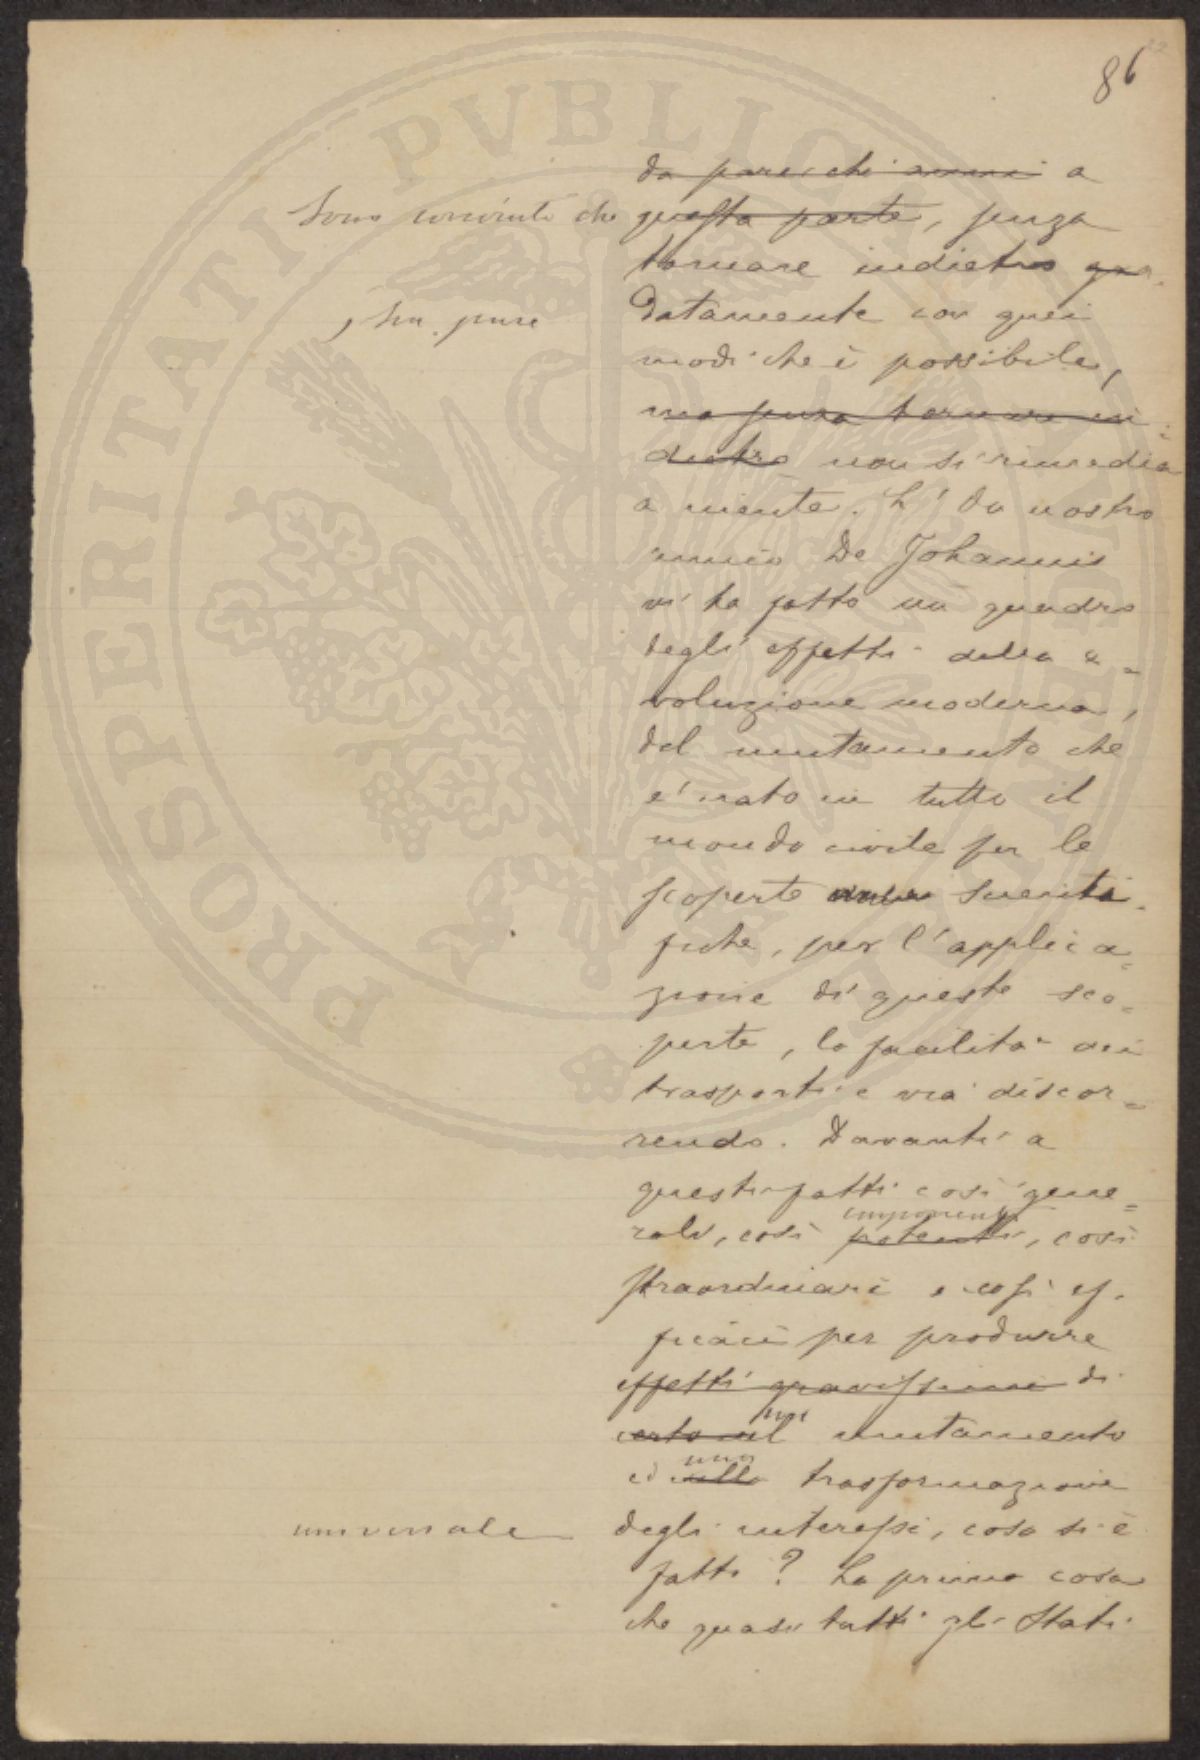 86
da parecchi anni a
Sono convinto che questa parte, senza
tornare indietro gra-
, sia pure datamente con quei
modi che è possibile,
ma senza tornare in-
dietro non si rimedia
a niente. L'
nostro
amico De Johannis
vi ha fatto un quadro
degli effetti della
voluzione moderna,
del mutamento che
è nato in tutto il
mondo civile per le
scoperte scienti-
fiche, per l'applica=
zione di queste sco=
perte, la facilità dei
trasporti e via discor=
rendo. Davanti a
questi fatti così gene=
imponenti
rali, così potenti, così
straordinari e così ef-
ficaci per produrre
effetti gravissimi di
un
certo nel mutamento
una
ed nella trasformazione
universale degli interessi, cosa si è
fatto? La prima cosa
che quasi tutti gli Stati
PROSPERITATI PVBLICAE AVGENDAE